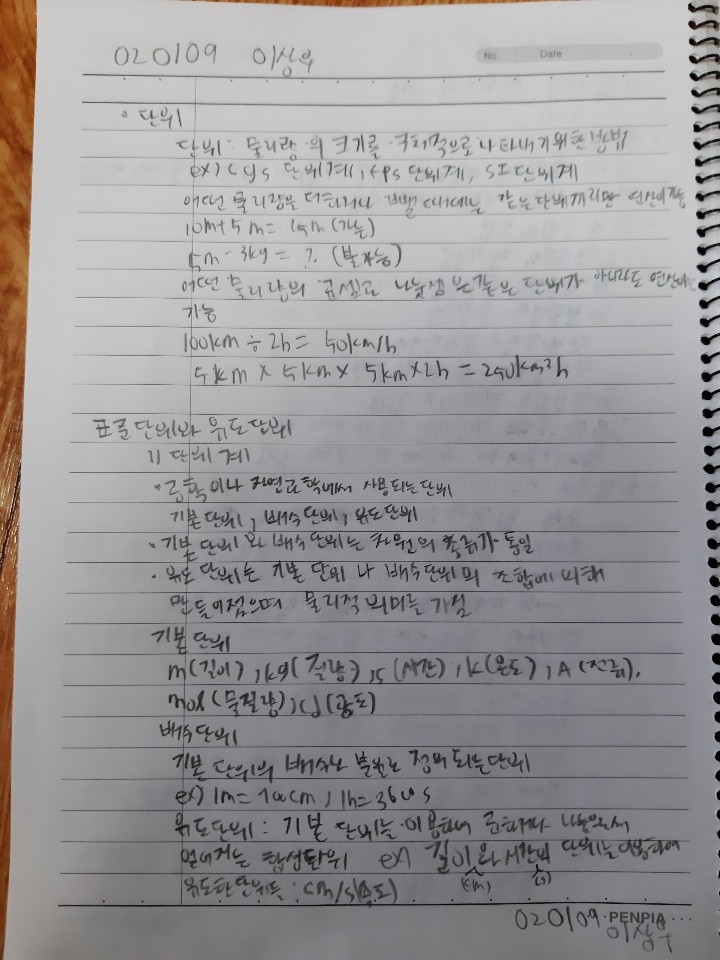 020109 이상우
No. Date
◦ 단위
단위: 물리량의 크기를 구체적으로 나타내기위한 방법
ex) cgs 단위계, fps 단위계, SI 단위계
어떤 물리량을 더하거나 뺄 때에는 같은단위끼리만 연산이가능
10m+5m=15m (가능)
5m-3kg=? (불가능)
어떤 물리량의 곱셈과 나눗셈은 같은 단위가 아니라도 연산이
가능
100km÷2h=50km/h
5km×5km×5km×2h=250km³h
표준단위와 유도단위
1) 단위계
·공학이나 자연과학에서 사용되는단위
기본단위, 배수단위, 유도단위
·기본단위와 배수단위는 차원의 종류가 동일
·유도단위는 기본 단위나 배수단위의 조합에 의해
만들어졌으며 물리적 의미를 가짐
기본단위
m(길이), kg(질량), s(시간), k(온도), A(전류),
mol(물질량), cd(광도)
배수단위
기본 단위의 배수나 분율로 정의되는단위
ex) 1m=100cm, 1h=3600s
유도단위: 기본 단위를 이용하여 곱하거나 나눔으로써
얻어지는 합성단위 ex 길이와 시간의 단위를이용하여
(cm) (s)
유도한단위는: cm/s(속도)
020109 PENPIA
이상우